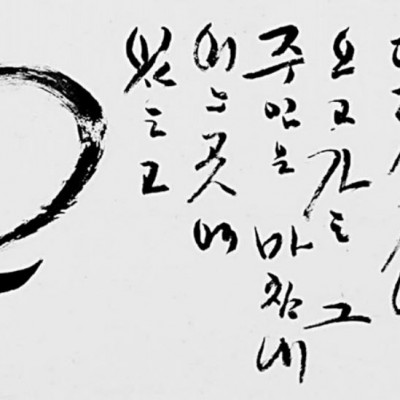 오고가는 그
주인은 마침내
어느곳에
있는고